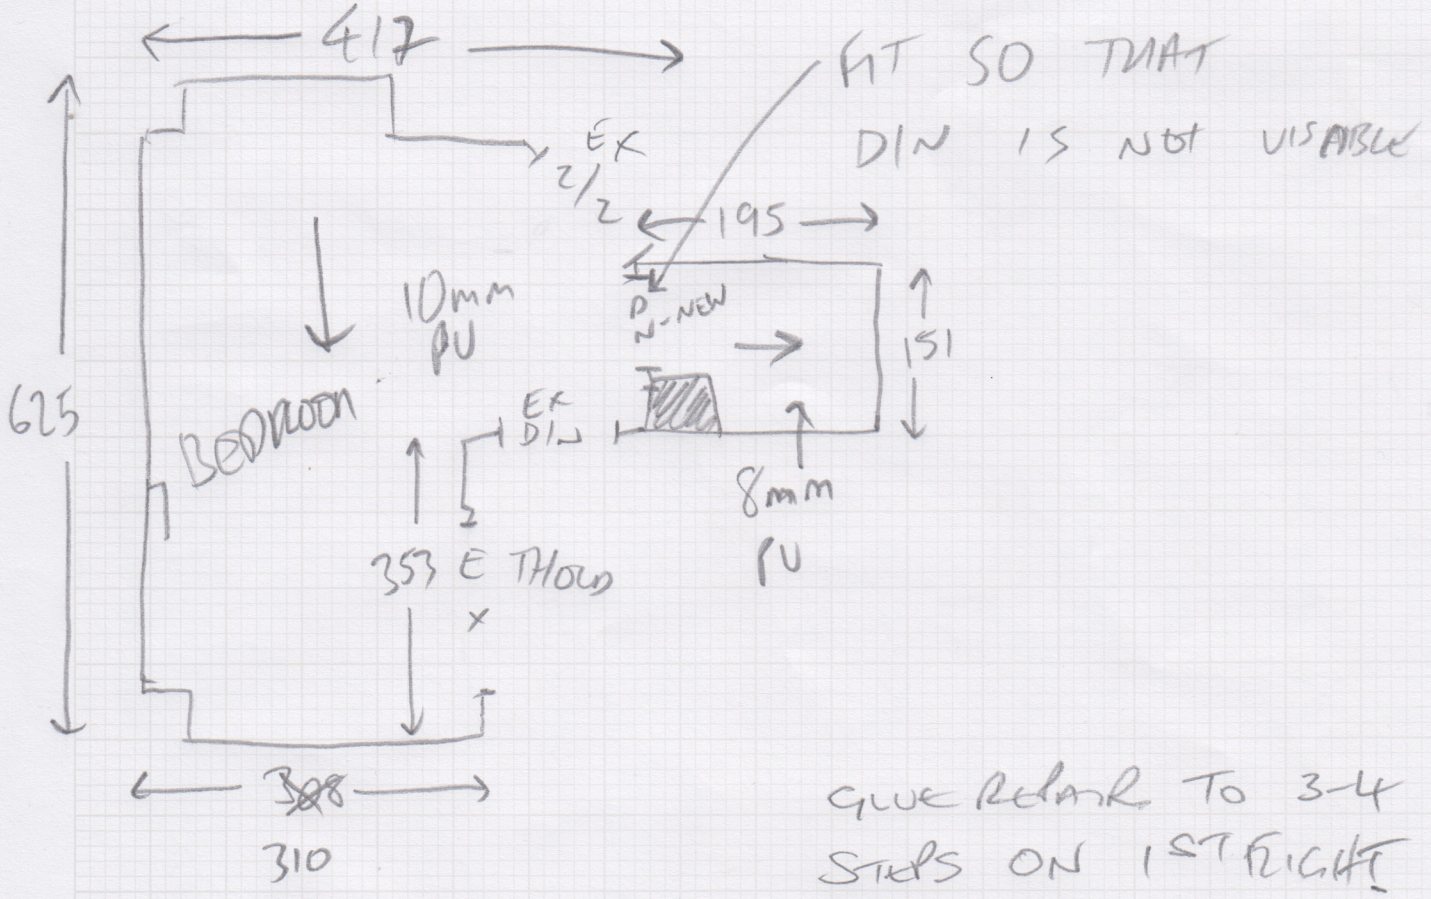 417
FIT SO THAT
DIN IS NOT VISABLE
EX
2/2
195
10mm
PU
D
N-NEW
151
625
BEDROOM
EX
DIN
8mm
PU
353
E THOLD
X
310
GLUE REPAIR TO 3-4
STEPS ON 1ST FLIGHT